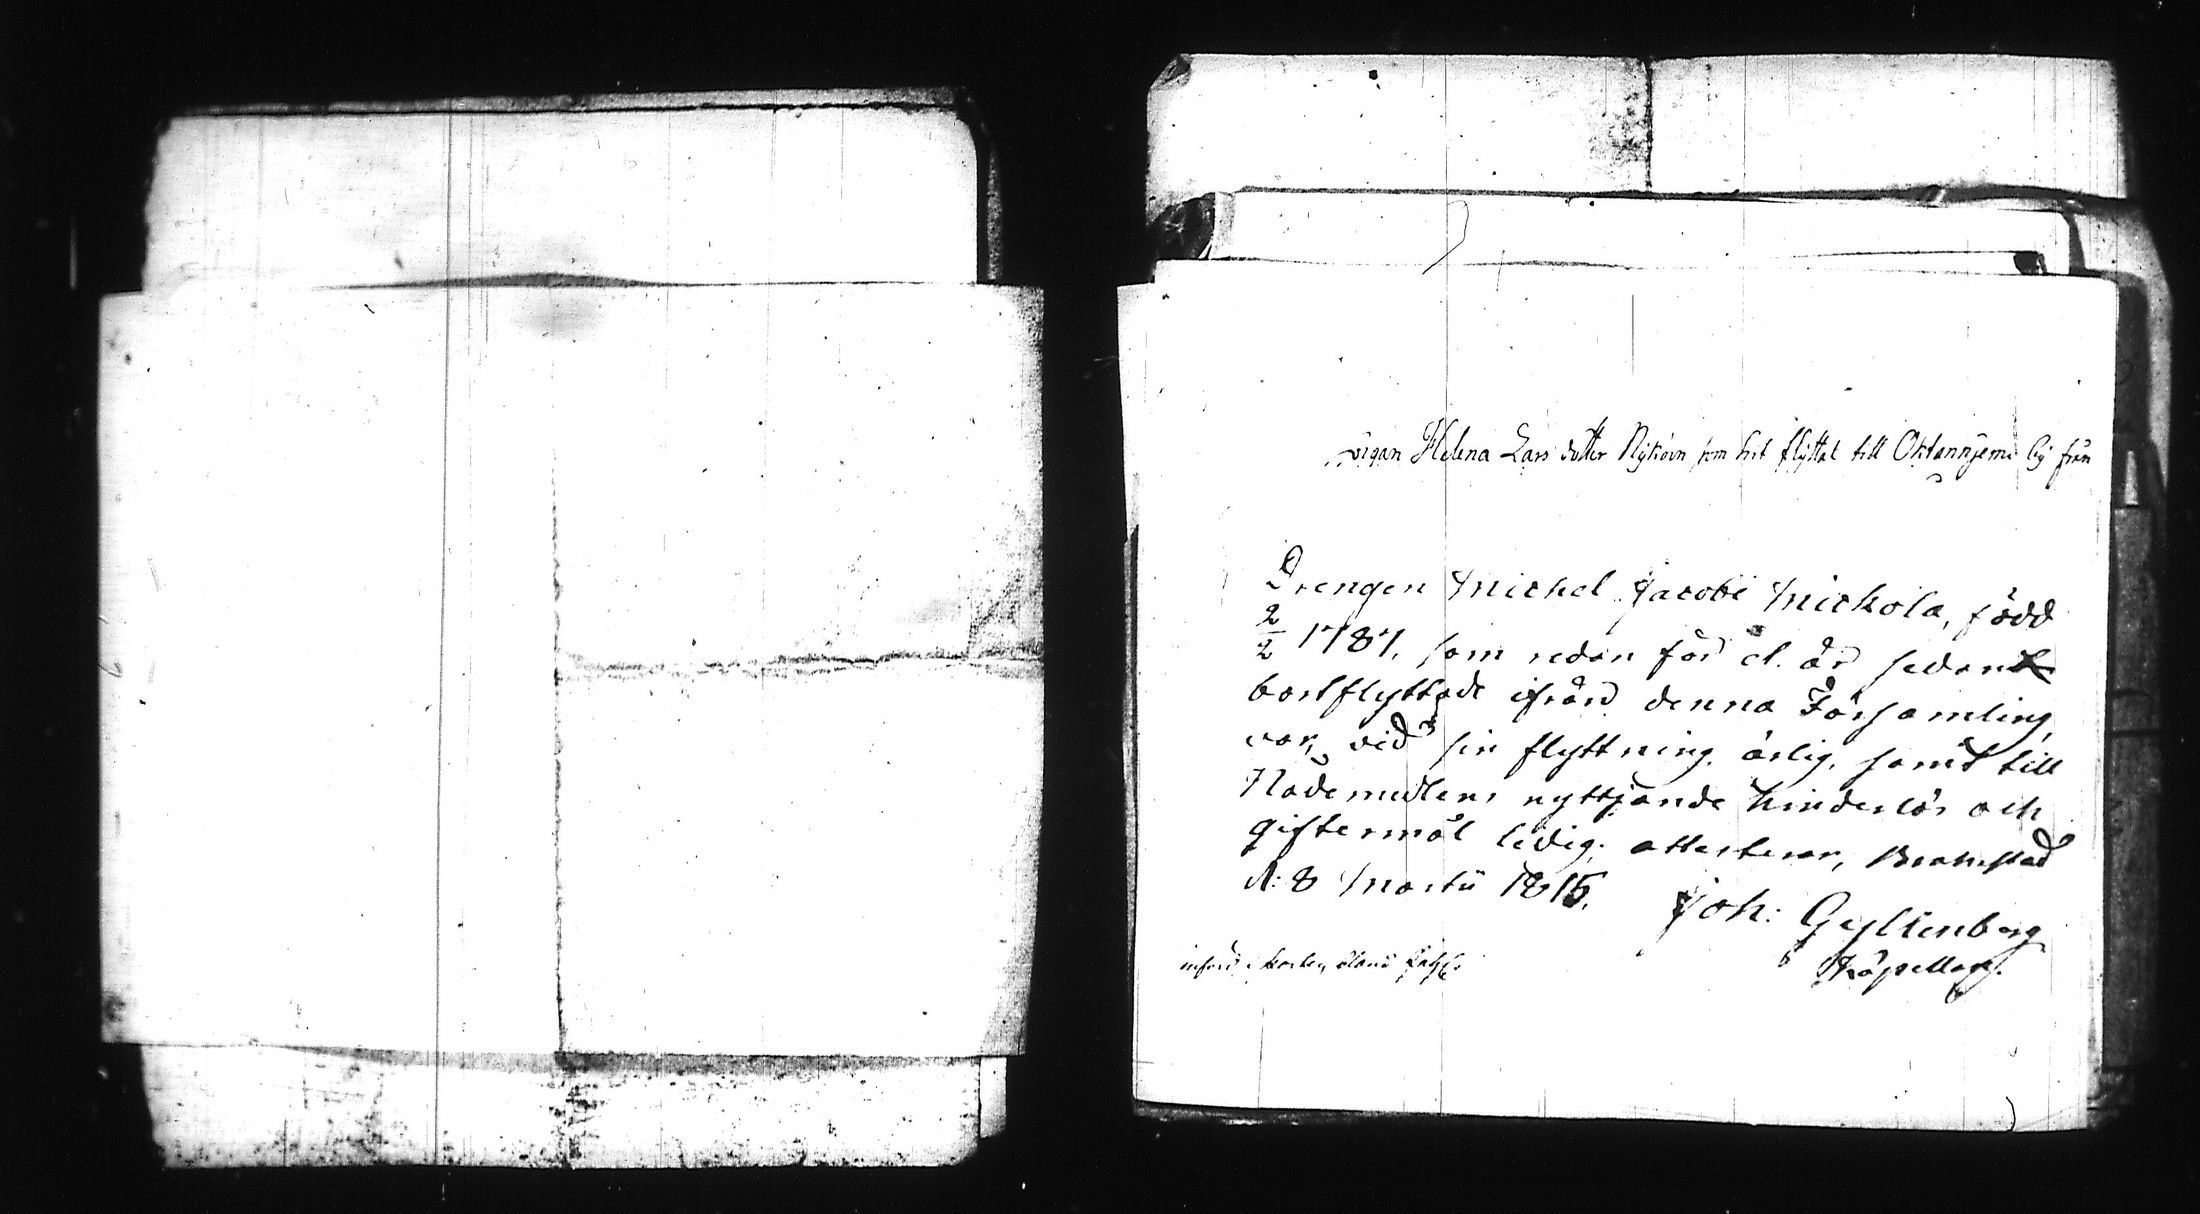 pigan Helena Lars dotter Nykövn som hit flyttat till Oktannjemi by från
Drengen Michel Jacobi Mickola, född
2/2 1787, som redan för et. år sedan
bortflyttade ifrån denna Församling,
var, vid sin flyttning, ärlig, samt till
Nådemedlens nyttjande hinderlös och
giftermål ledig; attesterar, Brahestad
d: 8 Martii 1815. Joh: Gyllenberg
Kapellan.